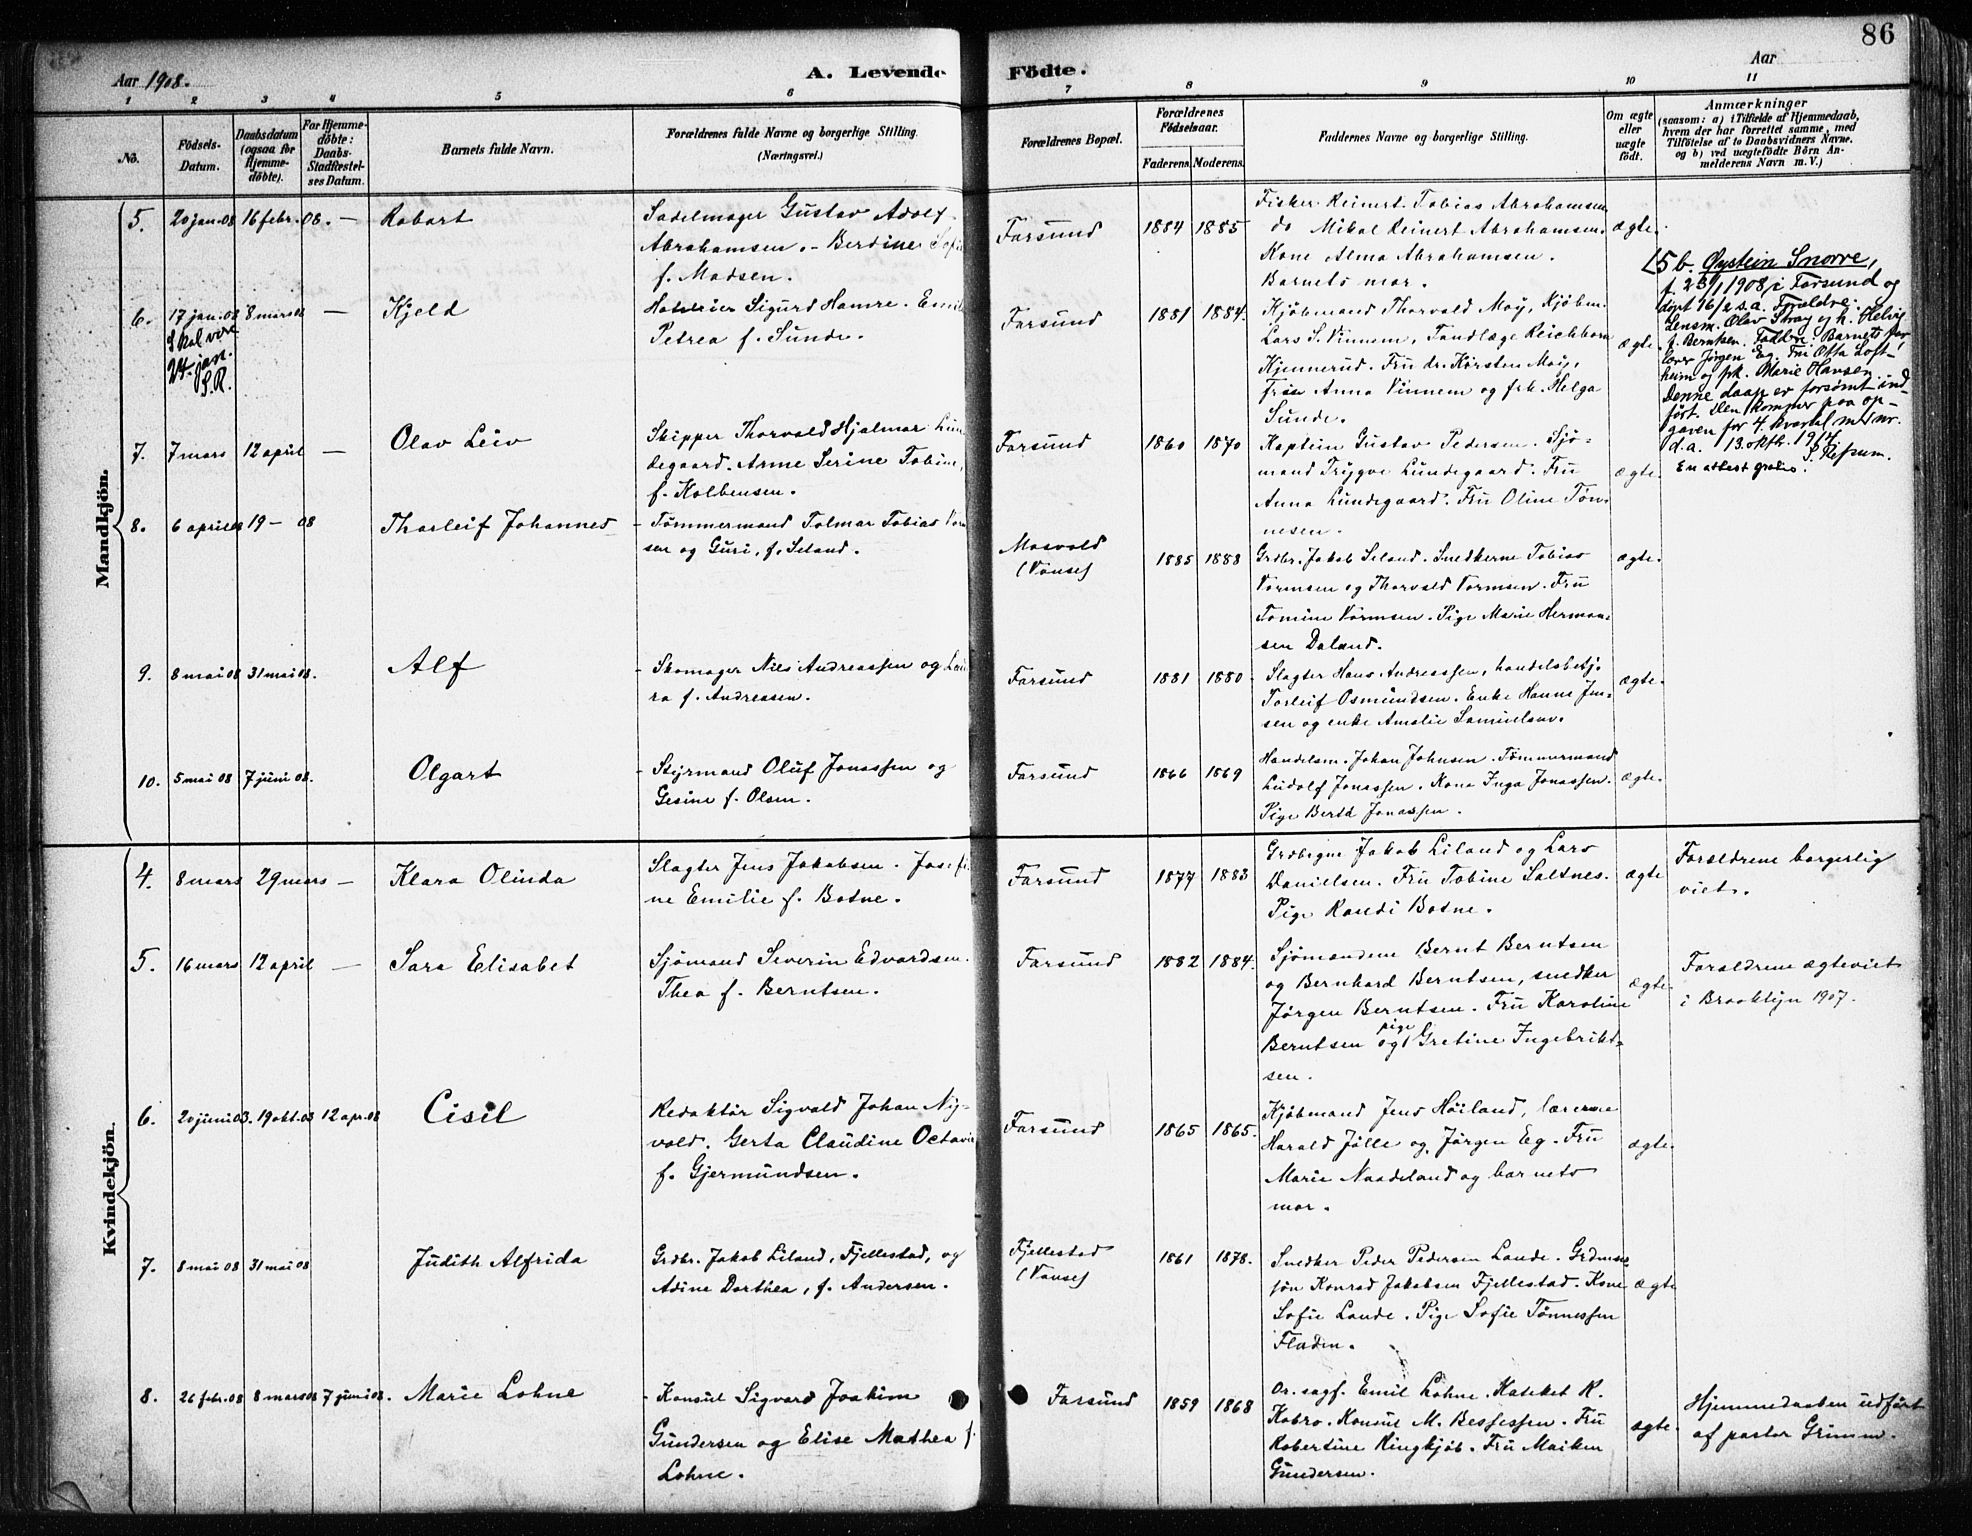 86
Aar 1908.
A. Levende Födte.
Aar
1 2 3 4 5 6 7 8 9 10 11
No.
Födsels-Datum.
Daabsdatum (ogsaa for Hjemmedöbte).
For Hjemmedöbte: Daabs-Stadfestelses Datum.
Barnets fulde Navn.
Forældrenes fulde Navne og borgerlige Stilling. (Næringsvei.)
Forældrenes Bopæl.
Forældrenes Födselsaar.
Faderens. Moderens.
Faddernes Navne og borgerlige Stilling.
Om ægte eller uægte födt.
Anmærkninger
(saasom: a) i Tilfælde af Hjemmedaab,
hvem der har forrettet samme, med
Tilföielse af to Daabsvidners Navne.
og b) ved uægtefödte Börn An-
melderens Navn m. V.)
Mandkjön.
5. 20 jan. 08 16 febr. 08. — Robert
Sadelmager Gustav Adolf
Abrahamsen. - Berdine Sofie
f. Madsen.
Farsund 1884 1885
Fisker Reinert Tobias Abrahamsen
do Mikal Reinert Abrahamsen.
Kone Alma Abrahamsen.
Barnets mor.
ægte.
5 b. Øystein Snorre,
f. 23/1 1908 i Farsund og
døpt 16/2 s.a. Foreldre:
Lensm. Olav Stray og h. Helvig
f. Berntsen. Faddre: Barnets far,
lærer Jørgen Eg. Fru Otta Loft-
heim og frk. Marie Hansen.
Denne daap er forsømt ind-
ført. Den kommer paa op-
gaven for 4. kvartal med nr.
d.a. 13. oktb. 1914.
S. Refsum.
En attest gratis.
6. 17 jan. 08 8 mars 08 — Kjeld
Skal være
24. jan.
S.R.
Hoteleier Sigurd Hamre. Emilie
Petrea f. Sunde.
Farsund 1881 1884.
Kjøbmand Thorvald Moy, Kjøbm.
Lars S. Vinnem, Tandlæge Reichborn
Kjennerud. Fru dr. Kirsten Moy,
Frøe Anna Vinnem og frk. Helga
Sunde.
ægte.
7. 7 mars 12 april — Olav Leiv
Skipper Thorvald Hjalmar Lun-
degaard. Anne Serine Tobine,
f. Kolbensen.
Farsund 1860 1870
Kaptein Gustav Pedersen. Sjø-
mand Trygve Lundegaard. Fru
Anna Lundegaard. Fru Oline Tøn-
nesen.
ægte.
8. 6 april 08 19 — 08 Thorleif Johannes
- Tømmermand Tolmar Tobias Vorm
sen og Guri, f. Seland.
Mosvold
(Vanse)
1885 1888
Grdbr. Jakob Seland. Snedkerne Tobias
Vormsen og Thorvald Vormsen. Fru
Tomine Vormsen. Pige Marie Herman-
sen Daland.
ægte.
9. 8 mai 08 31 mai 08. Alf
- Skomager Nils Andreassen og Lau
ra f. Andreasen.
Farsund 1881 1880
Slagter Hans Andreassen, handelsbetj.
Torleif Osmundsen. Enke Hanne Jen-
sen og enke Amalie Samuelsen.
ægte.
10. 5 mai 08 7 juni 08. Olgart
- Styrmand Oluf Jonassen og
Gesine f. Olsen.
Farsund 1866 1869
Handelsm. Johan Johnsen. Tømmermand
Ludolf Jonassen. Kone Inga Jonassen.
Pige Berta Jonassen.
ægte.
Kvindekjön.
4. 8 mars 29 mars — Klara Olinda
Slagter Jens Jakobsen. Josefi
ne Emilie f. Botne.
Farsund 1877 1883
Grdbrgne Jakob Liland og Lars
Danielsen. Fru Tobine Saltnes.
Pige Randi Botne.
ægte
Forældrene borgerlig
viet.
5. 16 mars 12 april — Sara Elisabet
Sjømand Severin Edvardsen.
Thea f. Berntsen.
Farsund 1882 1884.
Sjømandene Bernt Berntsen
og Bernhard Berntsen, snedker
Jørgen Berntsen. Fru Karoline
Berntsen og pige Gretine Ingebrikt-
sen.
ægte.
Forældrene ægteviet
i Brooklyn 1907.
6. 20 juni 03. 19 okt. 03 12 apr. 08 Cisil
Redaktør Sigvald Johan Ny-
vold. Gerta Claudine Octavie
f. Gjermundsen.
Farsund 1865 1865.
Kjøbmand Jens Høiland, lærerne
Harald Jølle og Jørgen Eg. Fru
Marie Naadeland og barnets
mor.
ægte.
7. 8 mai 08 31 mai 08 Judith Alfrida
Grdbr. Jakob Liland, Fjellestad, og
Adine Dorthea, f. Andersen.
Fjellestad
(Vanse)
1861 1878.
Snedker Peder Pedersen Lande. Grdmans-
søn Konrad Jakobsen Fjellestad. Kone
Sofie Lande. Pige Sofie Tønnessen
Fladen.
ægte
8. 26 febr. 08 8 mars 08 7 juni 08. Marie Lohne
- Konsul Sigvard Joakim
Gundersen og Elise Mathea f.
Lohne.
Farsund 1859 1868
Or. sagf. Emil Lohne. Kateket R.
Kobro. Konsul M. Bessesen. Fru
Robertine Ringkjøb. Fru Maiken
Gundersen.
ægte.
Hjemmedaaben udført
af pastor Grimm.